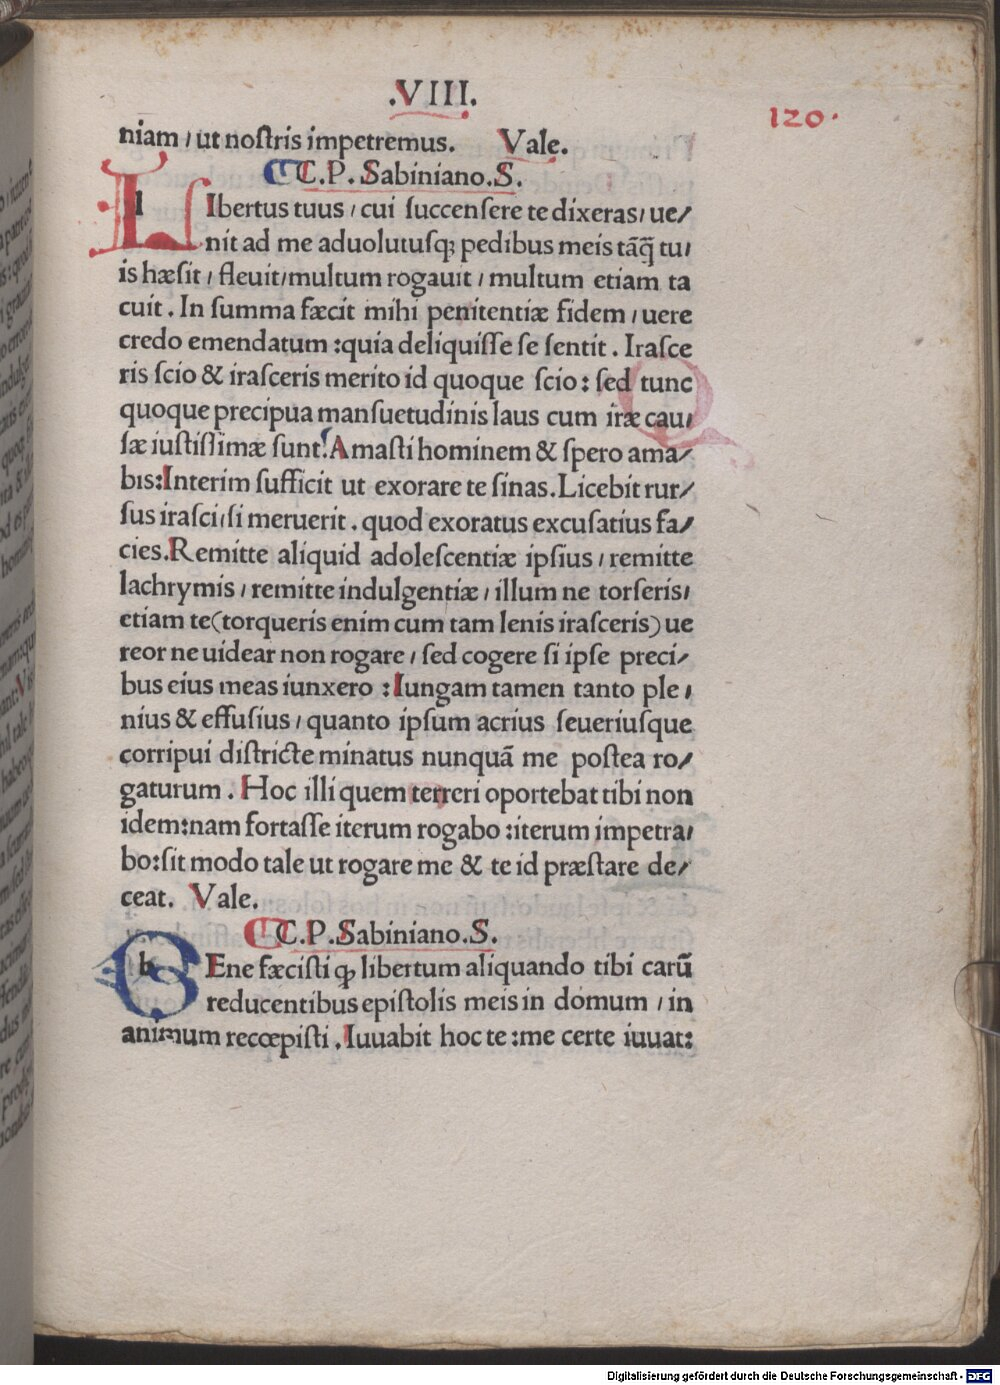 .VIII.
120.
niam / ut nostris impetremus. Vale.
C.P. Sabiniano.S.
lIbertus tuus / cui succensere te dixeras / ue/
nit ad me aduolutusq; pedibus meis tãq̃ tu/
is hæsit / fleuit / multum rogauit / multum etiam ta
cuit . In summa fæcit mihi penitentiæ fidem / uere
credo emendatum :quia deliquisse se sentit . Irasce
ris scio & irasceris merito id quoque scio: sed tunc
quoque precipua mansuetudinis laus cum iræ cau/
sæ iustissimæ sunt. Amasti hominem & spero ama/
bis: Interim sufficit ut exorare te sinas. Licebit rur/
sus irasci / si meruerit . quod exoratus excusatius fa/
cies. Remitte aliquid adolescentiæ ipsius / remitte
lachrymis / remitte indulgentiæ / illum ne torseris /
etiam te (torqueris enim cum tam lenis irasceris) ue
reor ne uidear non rogare / sed cogere si ipse preci/
bus eius meas iunxero : Iungam tamen tanto ple/
nius & effusius / quanto ipsum acrius seueriusque
corripui districte minatus nunquã me postea ro/
gaturum . Hoc illi quem terreri oportebat tibi non
idem:nam fortasse iterum rogabo :iterum impetra/
bo:sit modo tale ut rogare me & te id præstare de/
ceat. Vale.
C.P. Sabiniano.S.
bEne fæcisti ꝙ libertum aliquando tibi carũ
reducentibus epistolis meis in domum / in
animum recœpisti . Iuuabit hoc te :me certe iuuat:
Digitalisierung gefördert durch die Deutsche Forschungsgemeinschaft - DFG